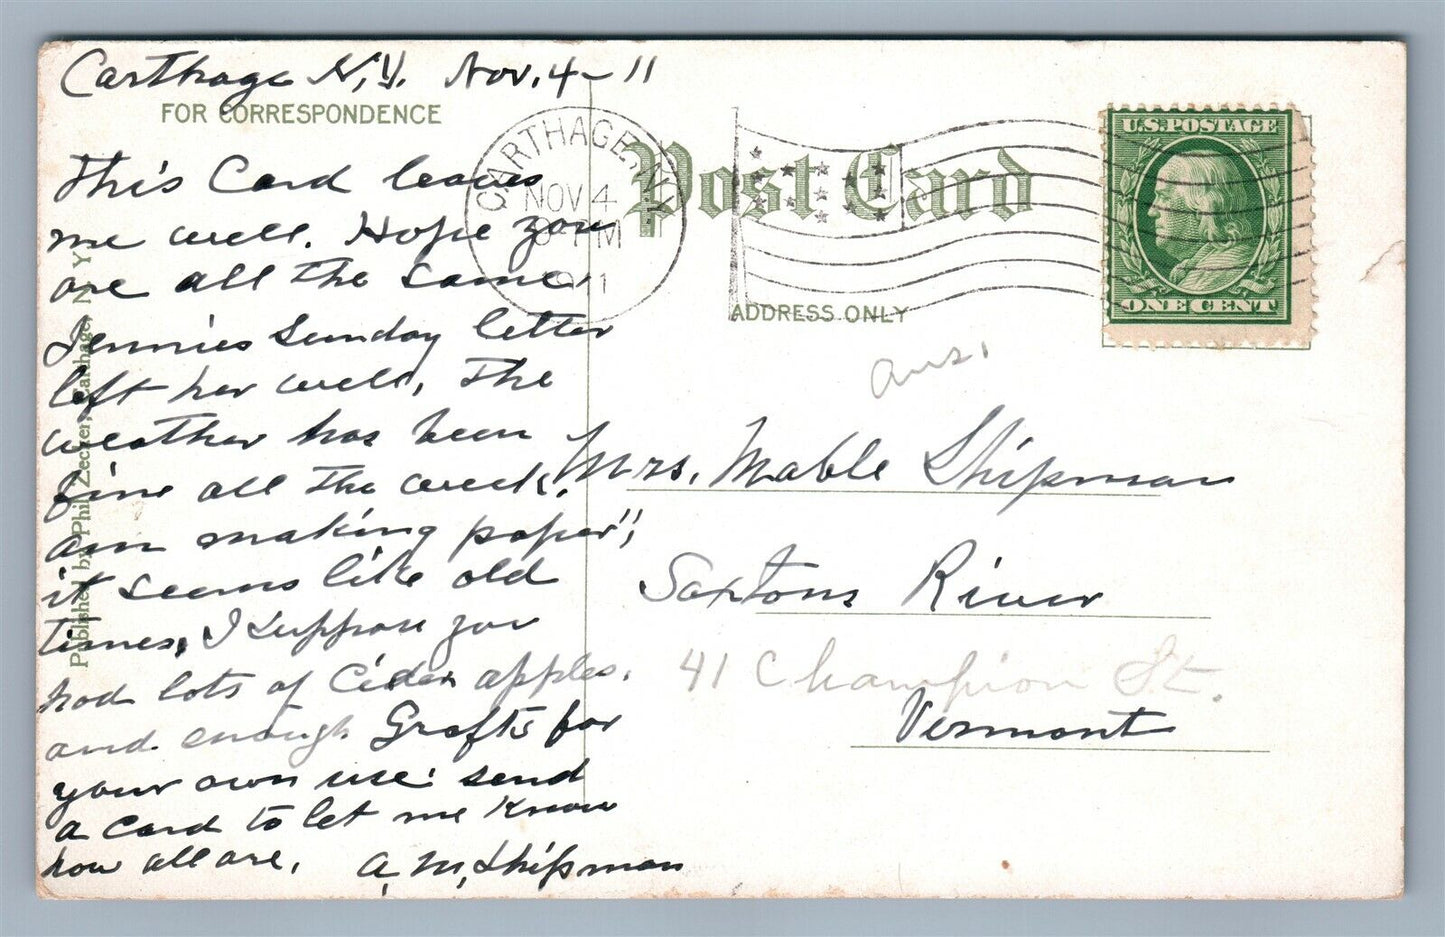 Carthage N.Y. Nov. 4 - 11
FOR CORRESPONDENCE
This Card leaves
me well. Hope you
are all the same.
Jennies Sunday letter
left her well, The
weather has been
fine all the week,
am making paper",
it seems like old
times, I suppose you
had lots of Cider apples.
and enough Grafts for
your own use: send
a card to let me know
how all are. A. M. Shipman
Published by Phil. Zecher, Carthage, N. Y.
CARTHAGE, N.Y.
NOV 4
8-PM
1911
Post Card
ADDRESS ONLY
U.S. POSTAGE
ONE CENT
ans.
Mrs. Mable Shipman
Saxtons River
41 Champion St.
Vermont